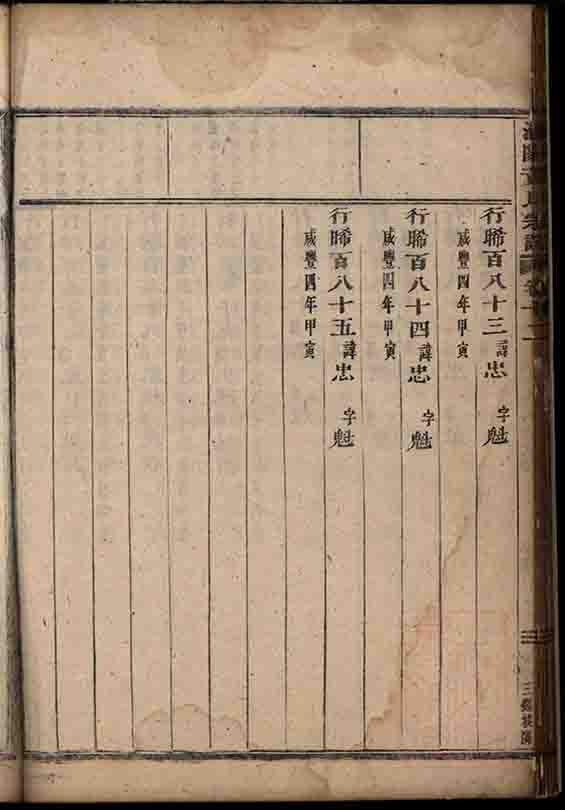 氏宗譜
行晞百八十三 諱忠 字魁
咸豐四年甲寅
行晞百八十四 諱忠 字魁
咸豐四年甲寅
行晞百八十五 諱忠 字魁
咸豐四年甲寅